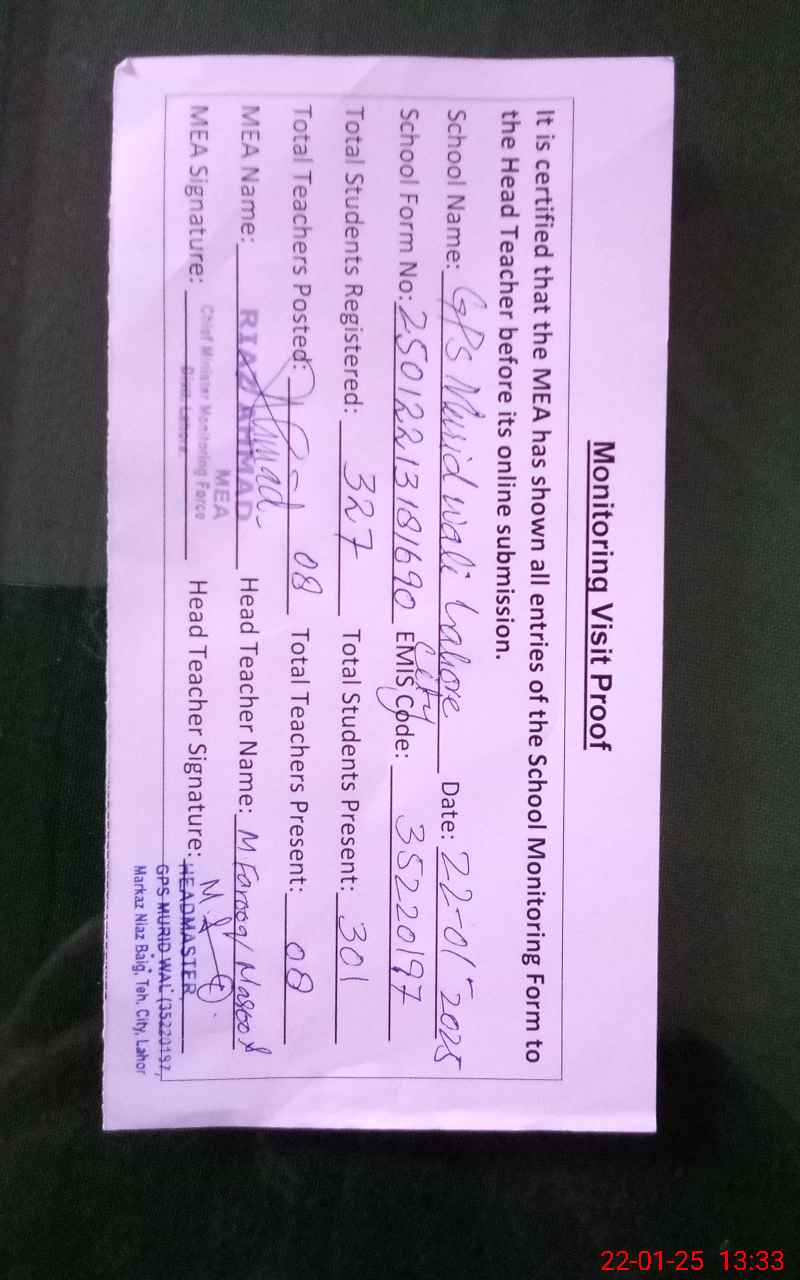 Monitoring Visit Proof
It is certified that the MEA has shown all entries of the School Monitoring Form to
the Head Teacher before its online submission.
School Name: GPS Murid wali Lahore City Date: 22-01-2025
School Form No: 25012213181690 EMIS Code: 35220197
Total Students Registered: 327 Total Students Present: 301
Total Teachers Posted: 08 Total Teachers Present: 08
MEA Name: RIAZ AHMAD Head Teacher Name: M Farooq Masood
MEA
MEA Signature: Head Teacher Signature:
Chief Minister Monitoring Force
Distt. Lahore.
HEADMASTER,
GPS MURID WAL (35220197,
Markaz Niaz Baig, Teh. City, Lahor
22-01-25 13:33